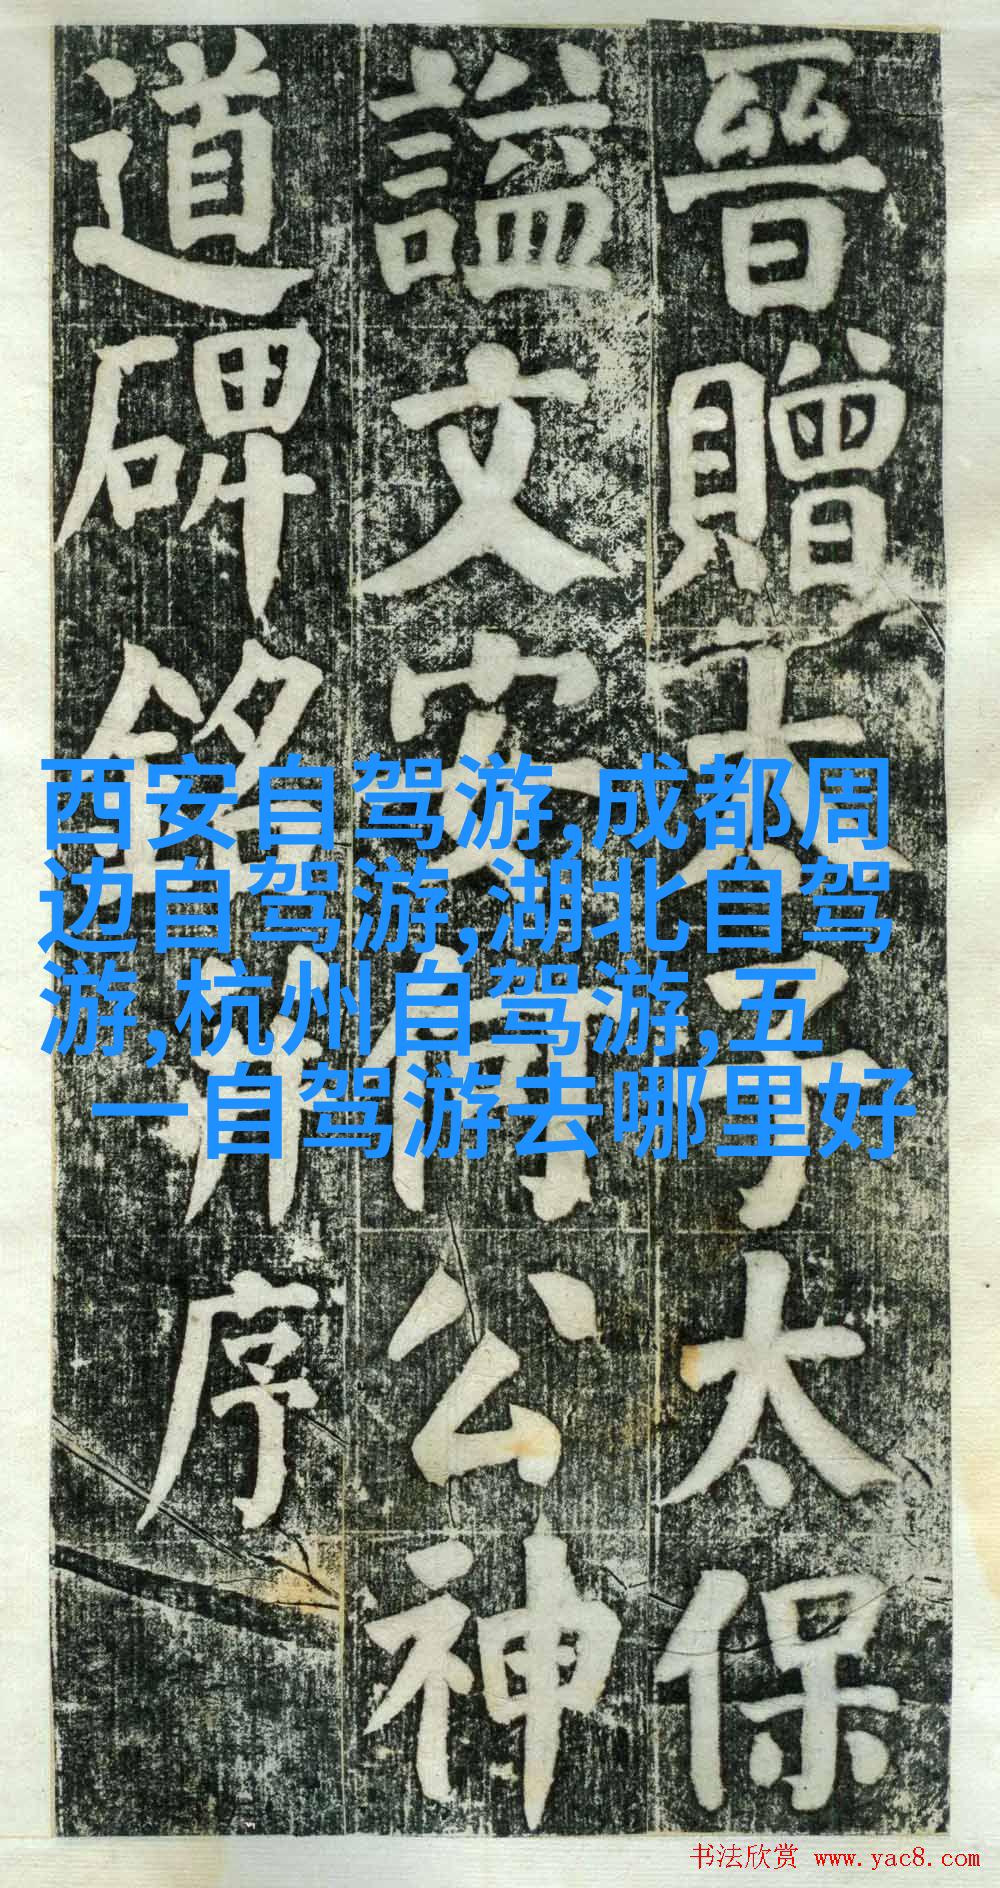 晉贈太子太保
謚文安何公神
道碑銘并序
西安自驾游,成都周
边自驾游,湖北自驾
游,杭州自驾游,五
一自驾游去哪里好
书法欣赏 www.yac8.com